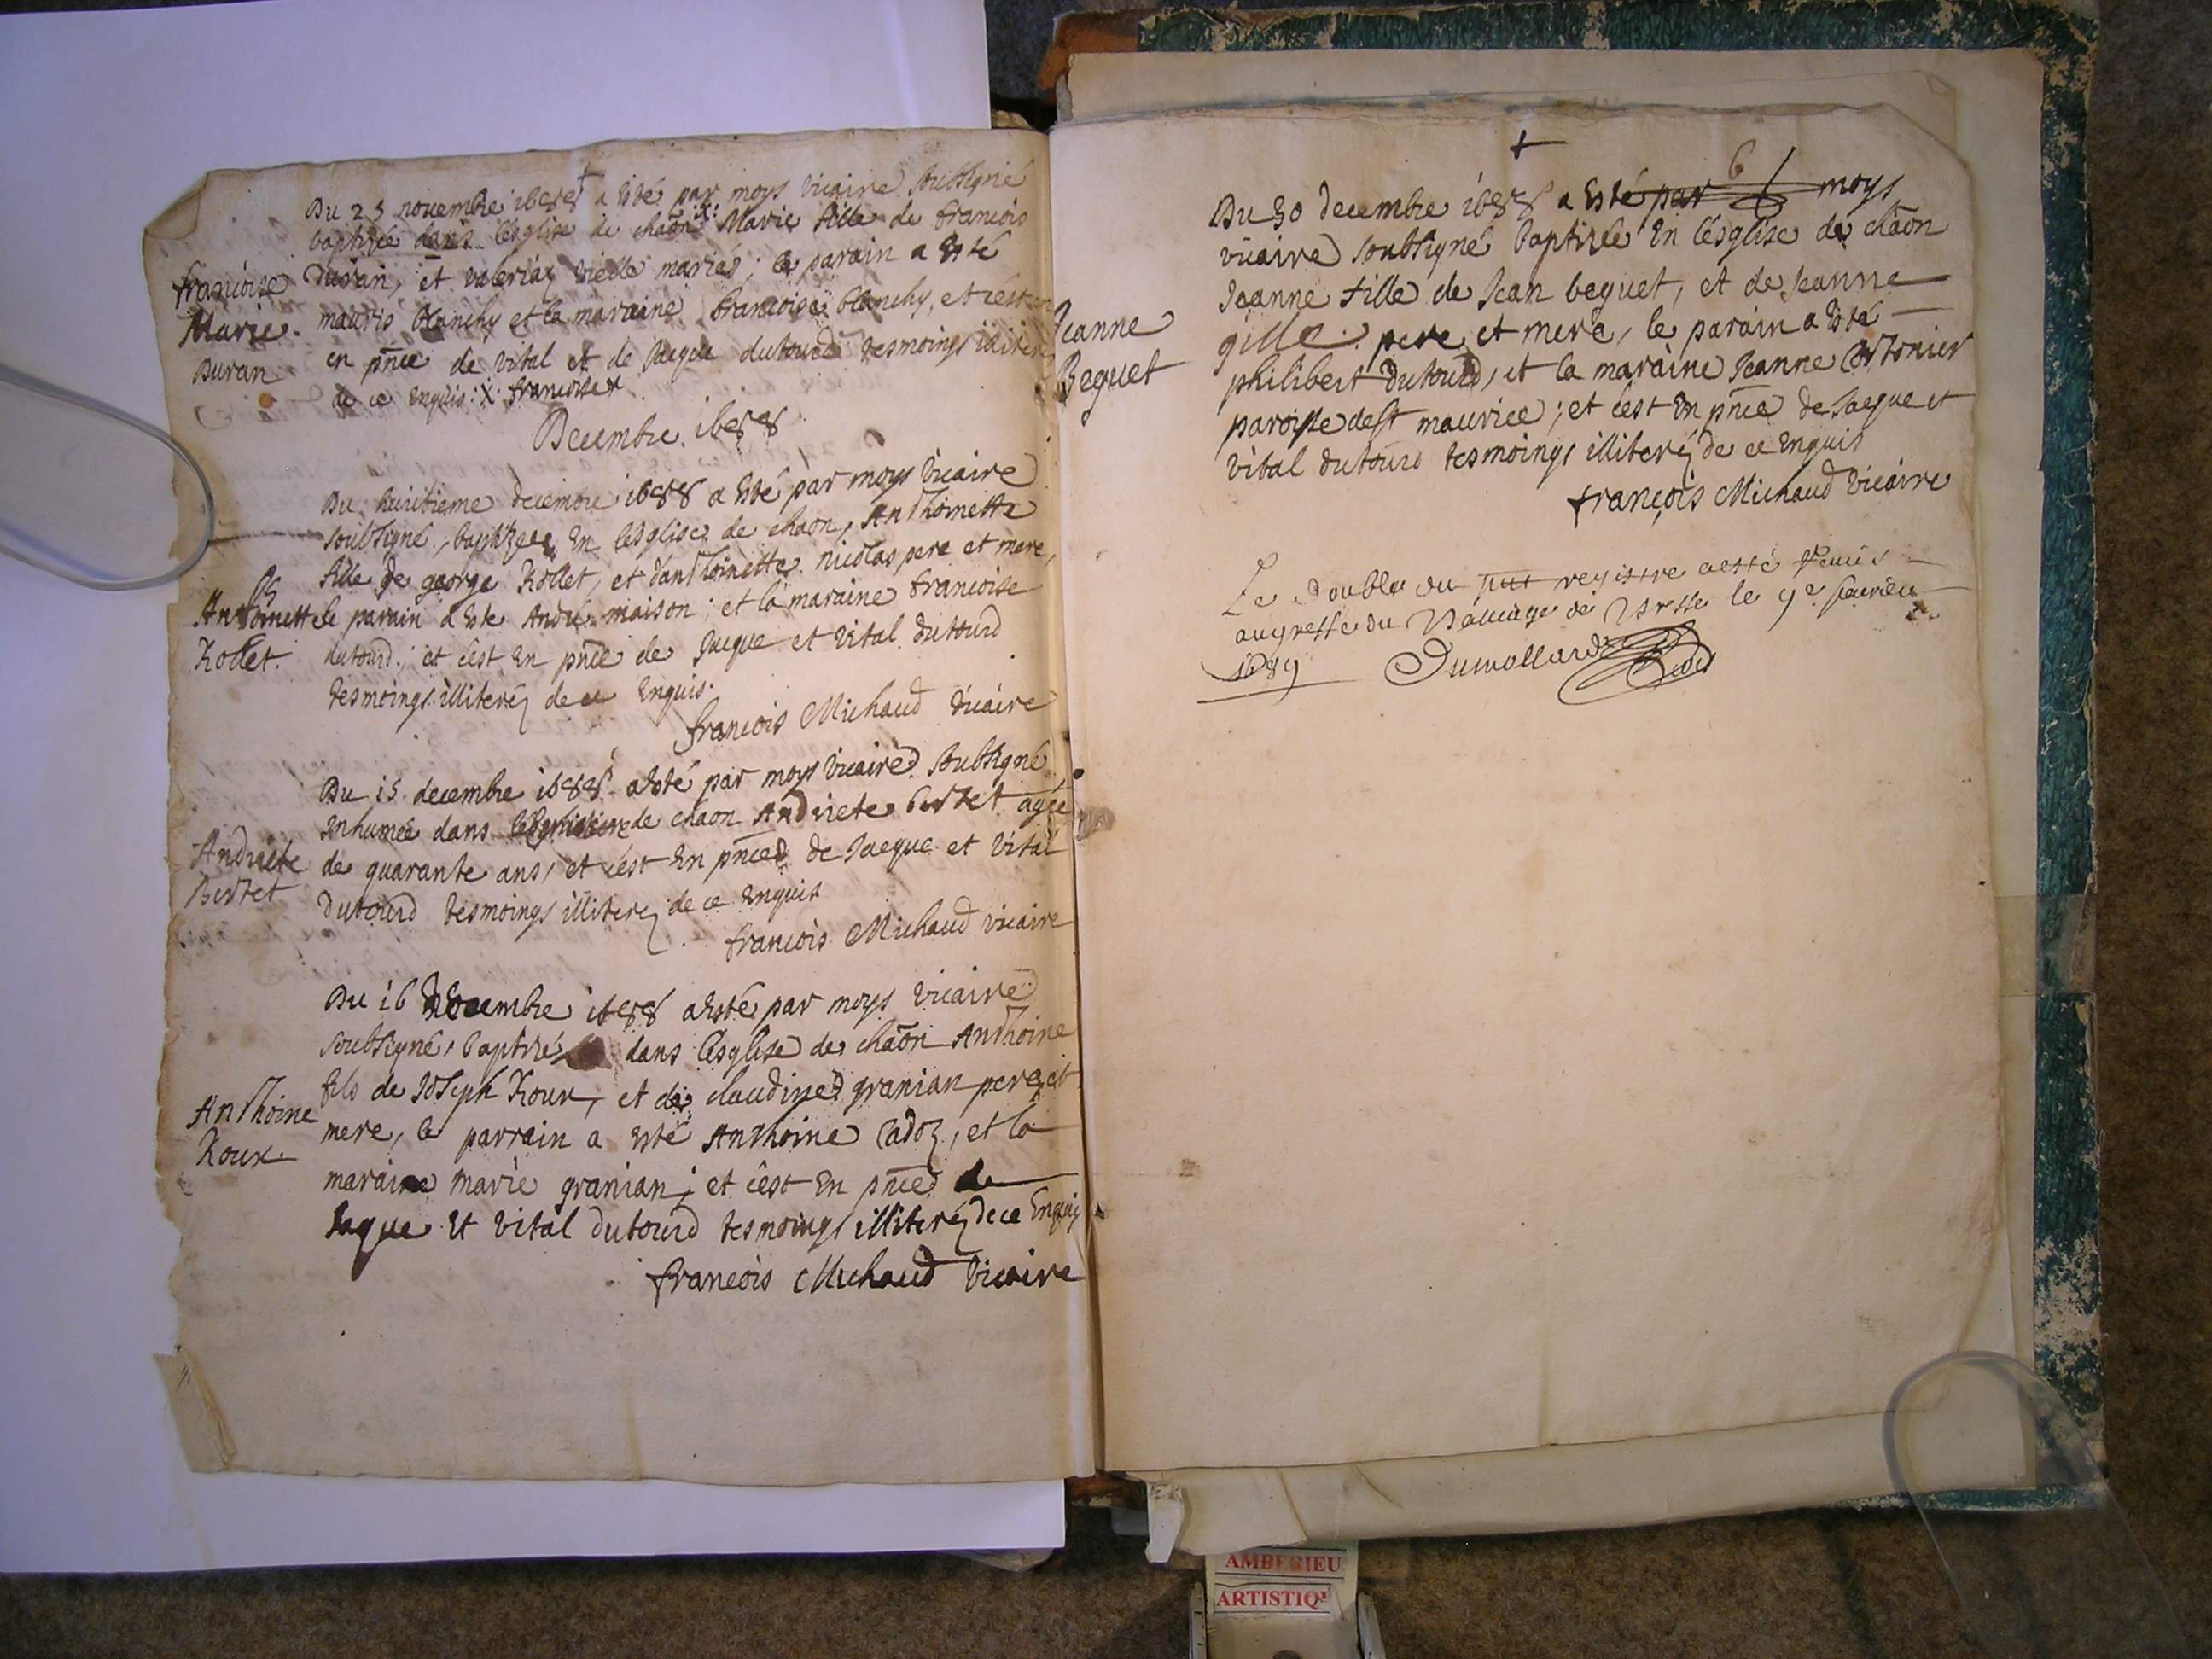 +
Du 25 novembre 1688 a esté par moys vicaire soubsigné
baptizée dans lésglise de chaon :x: Marie fille de francois
francoise
Marie
Duran
Duran, et valeriaz vielle mariés; le parain a esté
mauris blanchy et la maraine francoise blanchy, et cest en
en pñce de vital et de Jacque dutourd tesmoings illiteréz
de ce enquis :x: francoise x
Decembre 1688
Du huictieme decembre 1688 a esté par moys vicaire
soubsigné, baptizeee en lésglise de chaon, Anthoinette
fille de george Rollet, et danthoinette nicolas pere et mere,
Anthoinette
Rollet.
le parain a este André maison; et la maraine francoise
dutourd; et cést en pñce de Jacque et vital dutourd
tesmoings illiteréz de ce enquis.
francois Michaud vicaire
Du 15 decembre 1688 a esté par moys vicaire soubsigné
inhumée dans de chaon Andriete bertet agée
Andriete
Bertet
de quarante ans, et cést en pñce de Jacque et vital
dutourd tesmoings illiteréz de ce enquis
francois Michaud vicaire
Du 16 decembre 1688 a esté par moys vicaire
soubsigné, baptizé dans lésglise de chaõn Anthoine
Anthoine
Roux.
fils de Joseph Roux, et de claudine granian pere et
mere, le parrain a esté Anthoine Cadoz, et la
maraine marie granian; et cêst en pñce de
Jaque et vital dutourd tesmoings illiteréz de ce enquis
francois Michaud vicaire
+
6
Du 30 decembre 1688 a esté par moys
vicaire soubsigné baptizée en lésglise de chãon
Jeanne
Beguet
Jeanne fille de Jean beguet, et de Jeanne
gille pere et mere, le parain a esté
philibert dutourd, et la maraine Jeanne
paroisse de st maurice; et cést en pñce de Jacque et
vital dutourd tesmoings illiteréz de ce enquis
françois Michaud vicaire
Le double du pnt registre a esté remis
au greffe du Bailliage de Bresse le 9e feurier
1689 Dumollard